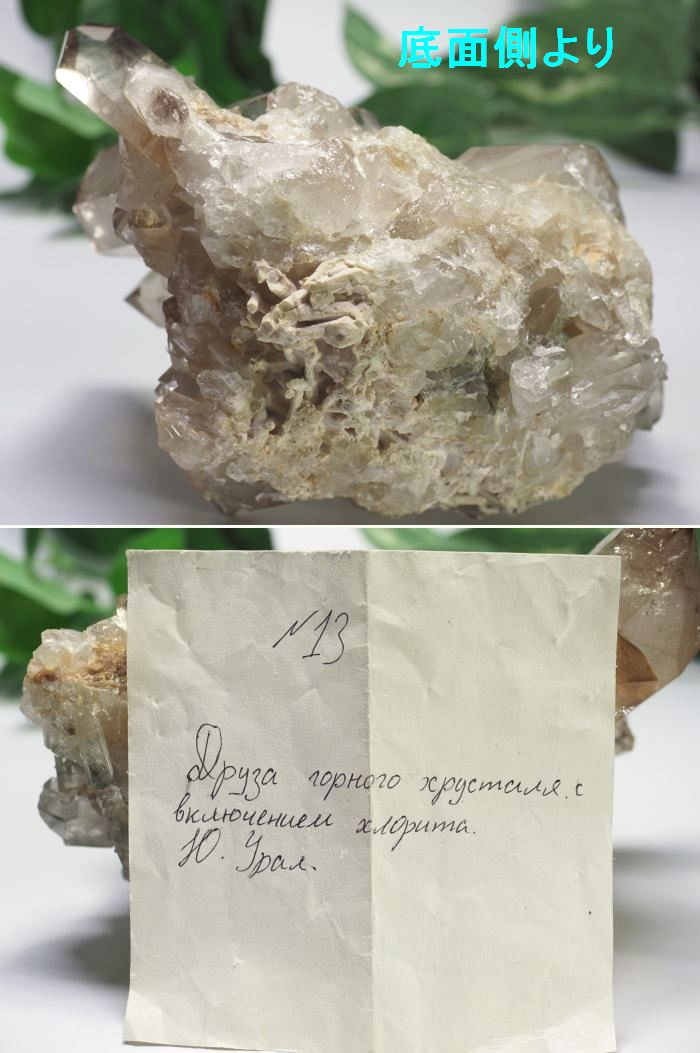 底面側より
N13
Друза горного хрусталя. с
включением хлорита.
Ю. Урал.